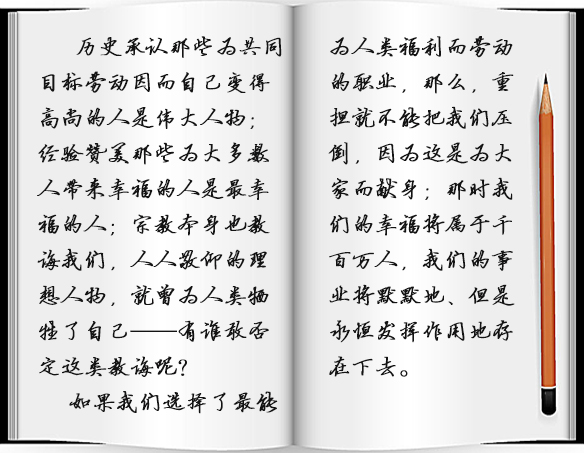 历史承认那些为共同
目标劳动因而自己变得
高尚的人是伟大人物；
经验赞美那些为大多数
人带来幸福的人是最幸
福的人；宗教本身也教
诲我们，人人敬仰的理
想人物，就曾为人类牺
牲了自己——有谁敢否
定这类教诲呢？
如果我们选择了最能
为人类福利而劳动
的职业，那么，重
担就不能把我们压
倒，因为这是为大
家而献身；那时我
们的幸福将属于千
百万人，我们的事
业将默默地、但是
永恒发挥作用地存
在下去。